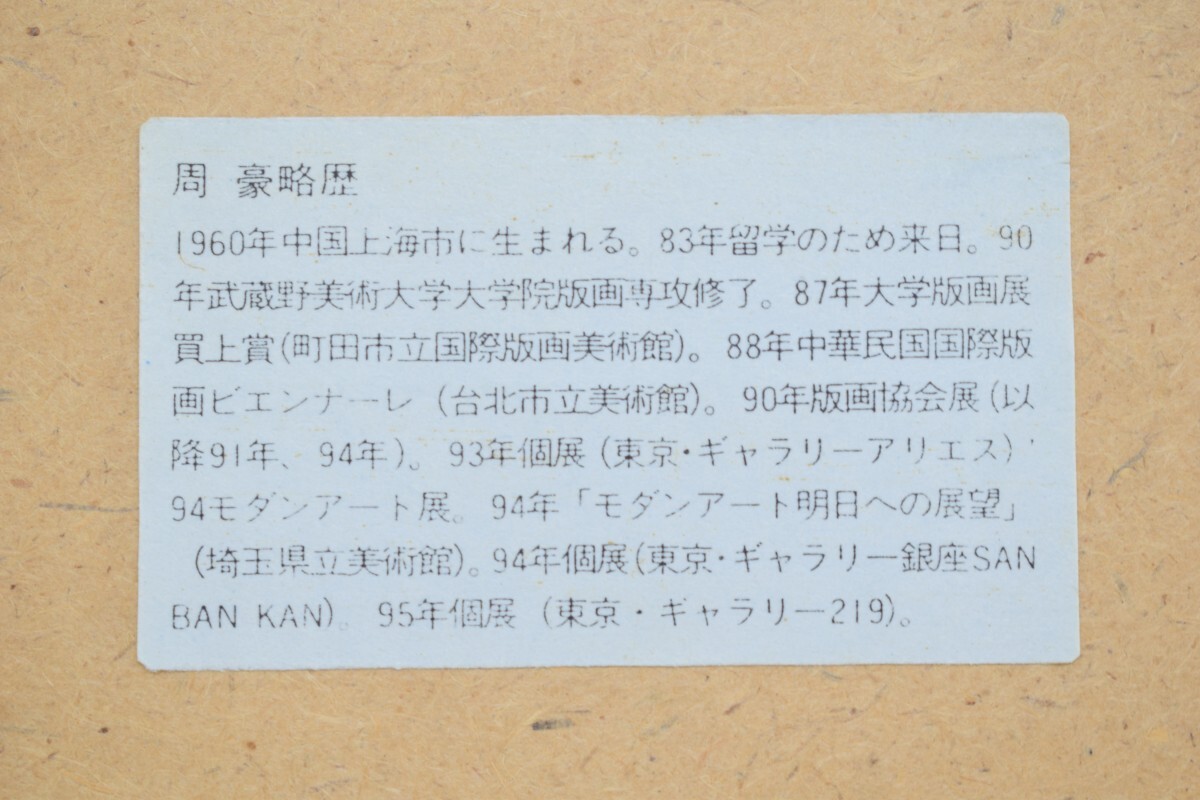 周 豪略歴
1960年中国上海市に生まれる。83年留学のため来日。90
年武蔵野美術大学大学院版画専攻修了。87年大学版画展
買上賞(町田市立国際版画美術館)。88年中華民国国際版
画ビエンナーレ(台北市立美術館)。90年版画協会展(以
降91年、94年)。93年個展(東京・ギャラリーアリエス)'
94モダンアート展。94年「モダンアート明日への展望」
(埼玉県立美術館)。94年個展(東京・ギャラリー銀座SAN
BAN KAN)。95年個展(東京・ギャラリー219)。